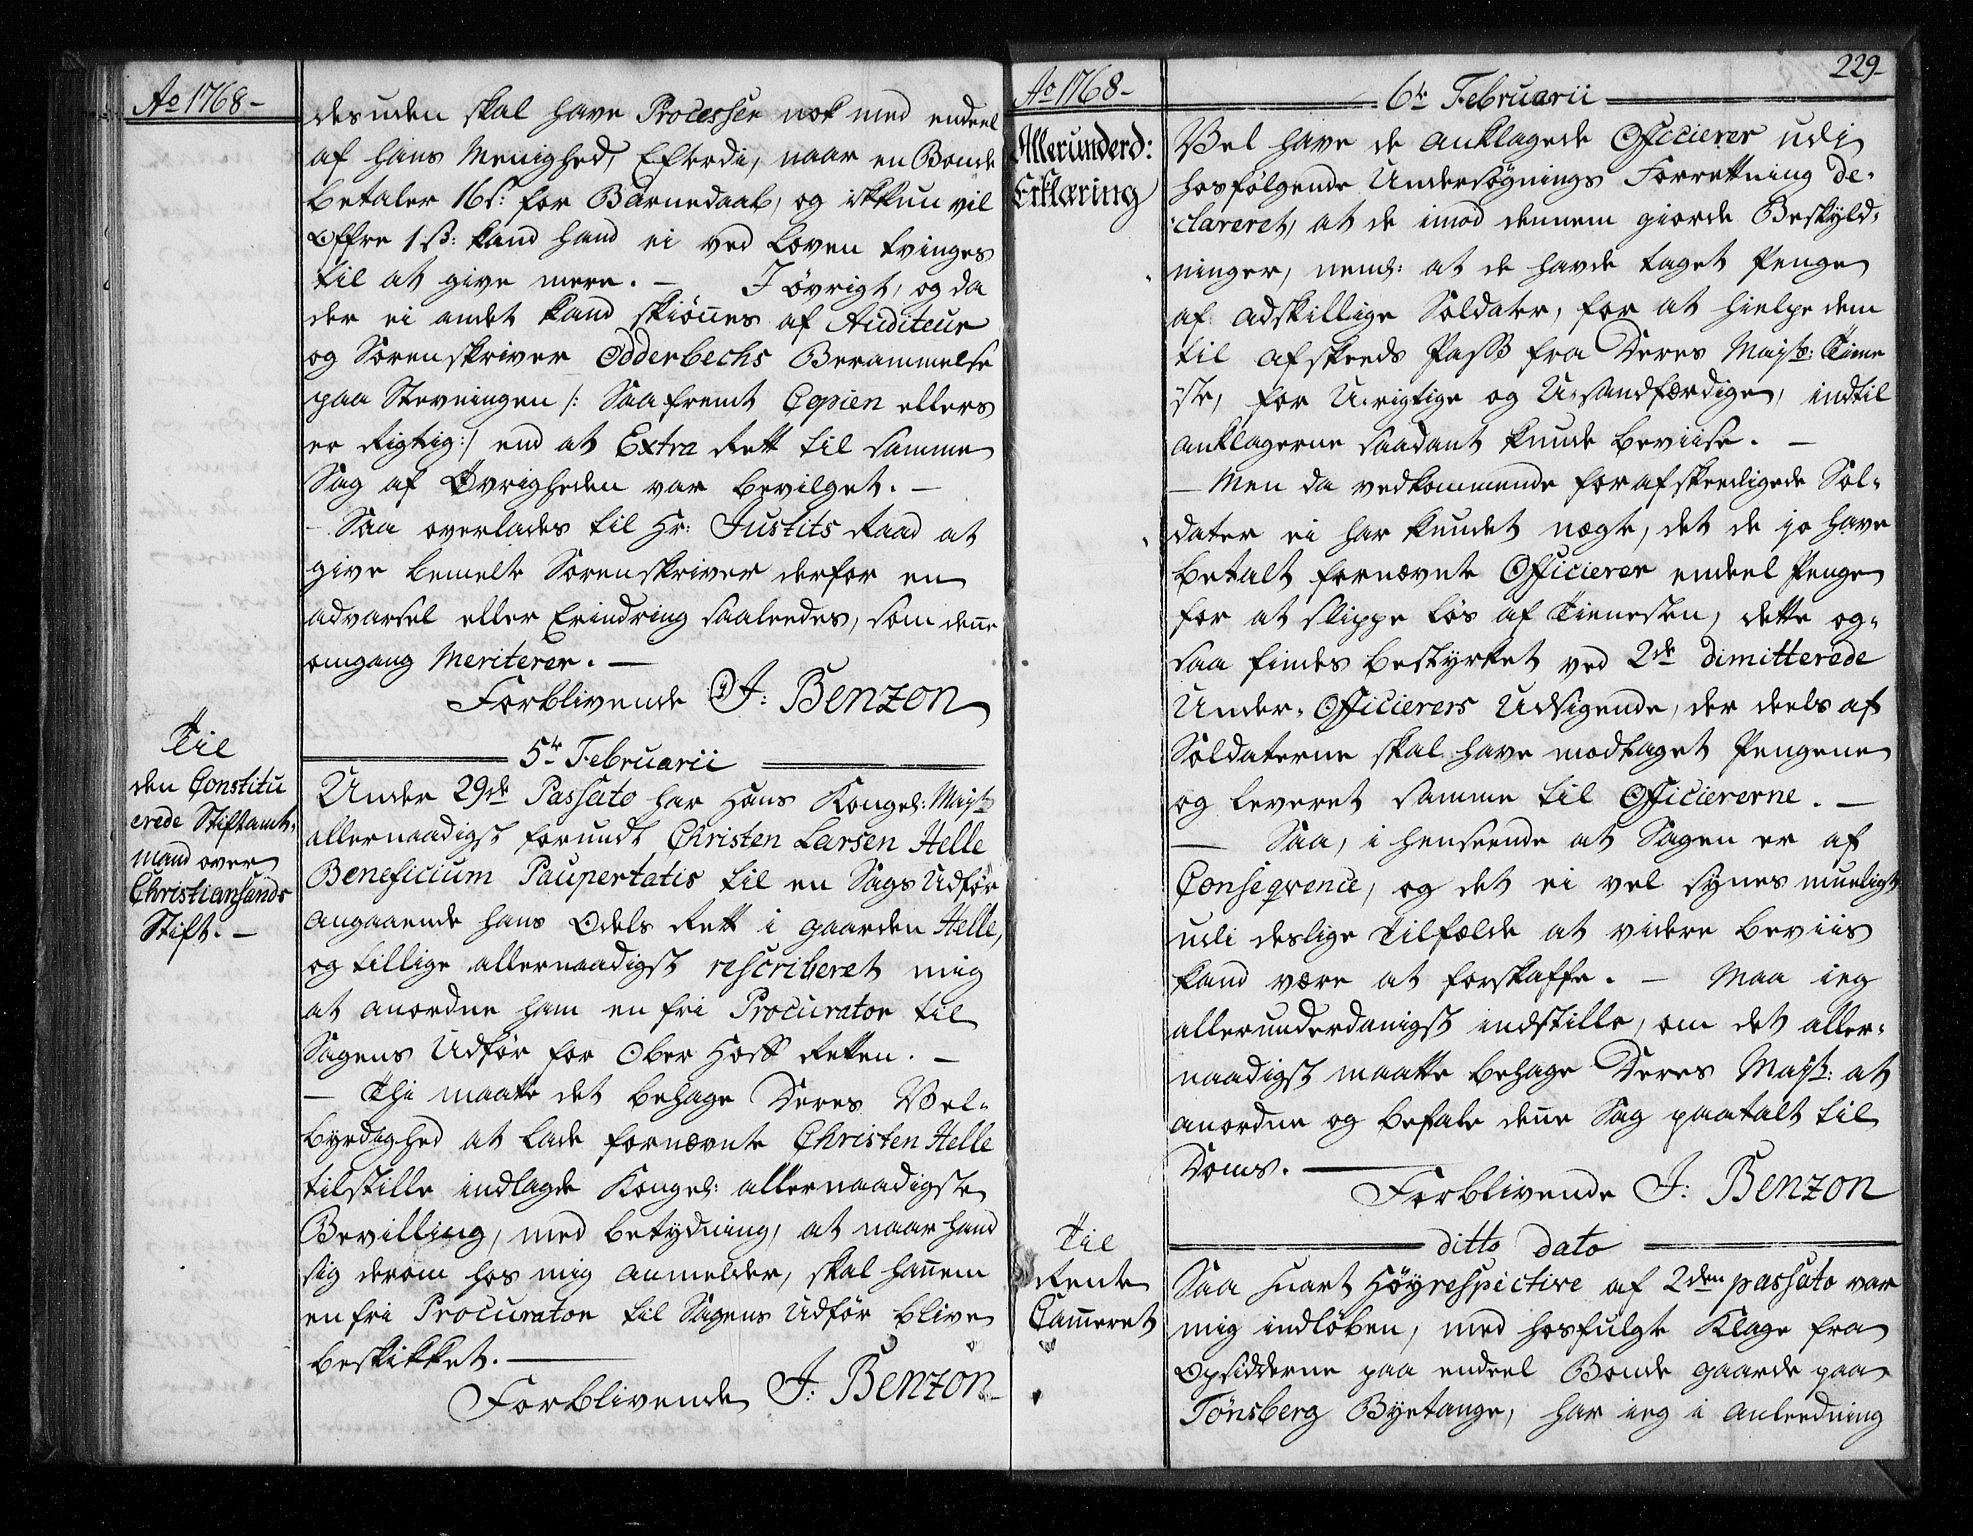 Ao 1768 –
desuden skal have Processer nok med endeel
af hans Menighed, Efterdi, naar en Bonde
betaler 16 s: for Barnedaab, og ikkun vil
Offre 1 s: kand hand ei ved Loven tvinges
til at give mere. – I øvrigt, og da
der ei andet kand skiønnes af Auditeur
og Sorenskriver Odderbechs Berammelse
paa Stevningen /: Saafremt Copien ellers
er Rigtig :/ end at Extra Rett til samme
Sag af Øvrigheden var bevilget. –
– Saa overlades til Hr: Justits Raad at
give bemelte Sorenskriver derfor en
advarsel eller Erindring saaleedes, som denne
omgang Meriterer. –
Forblivende J: Benzon
Til
den Constitu
erede Stiftamt-
mand over
Christiansands
Stift. –
5te Februarii
Under 29de Passato har Hans Kongel: Mayst
allernaadigst forundt Christen Larsen Helle
Beneficium Paupertatis til en Sags Udfør
angaaende hans Odels Rett i gaarden Helle,
og tillige allernaadigst rescriberet mig
at anordne ham en fri Procurator til
Sagens Udfør for Ober Hoff Retten. –
– Thi maatte det behage Deres Vel-
byrdighed at lade fornævnte Christen Helle
tilstille indlagde Kongel: allernaadigste
Bevilling, med betydning, at naar hand
sig derom hos mig anmelder, skal hannem
en fri Procurator til Sagens Udfør blive
beskikket. –
Forblivende J: Benzon
229-
Ao 1768 –
6te Februarii
Allerunderd:
Erklæring
Vel have de anklagede Officierer udi
hosfølgende Undersøgnings Forrettning de-
clareret, at de imod dennem giorde Beskyld-
ninger, neml: at de havde taget Penge
af adskillige Soldater, for at hielpe dem
til afskeeds Pass fra Deres Mayst: Tiene
ste, for U-rigtige og U-sandfærdige, indtil
anklagerne saadant kunde beviise. –
– Men da vedkommende forafskeedigede Sol-
dater ei har kundet nægte, det de jo have
betalt fornævnte Officierer endeel Penge
for at slippe løs af Tienesten, dette og-
saa findes bestyrket ved 2de dimitterede
Under-Officierers Udsigende, der deels af
Soldaterne skal have modtaget Pengene
og leveret samme til Officiererne. –
– Saa, i henseende at Sagen er af
Conseqvence, og det ei vel synes mueligt
udi deslige Tilfælde at videre beviis
kand være at forskaffe. – Maa ieg
allerunderdanigst indstille, om det aller-
naadigst maatte behage Deres Mayst: at
anordne og befale denne Sag paatalt til
Doms. –
Forblivende J: Benzon
ditto dato
Til
Rente
Cammeret
Saa snart Høyrespictive af 2den passato var
mig indløben, med hosfulgte Klage fra
Opsidderne paa endeel Bonde gaarde paa
Tønsberg Byetange, har ieg i anleedning